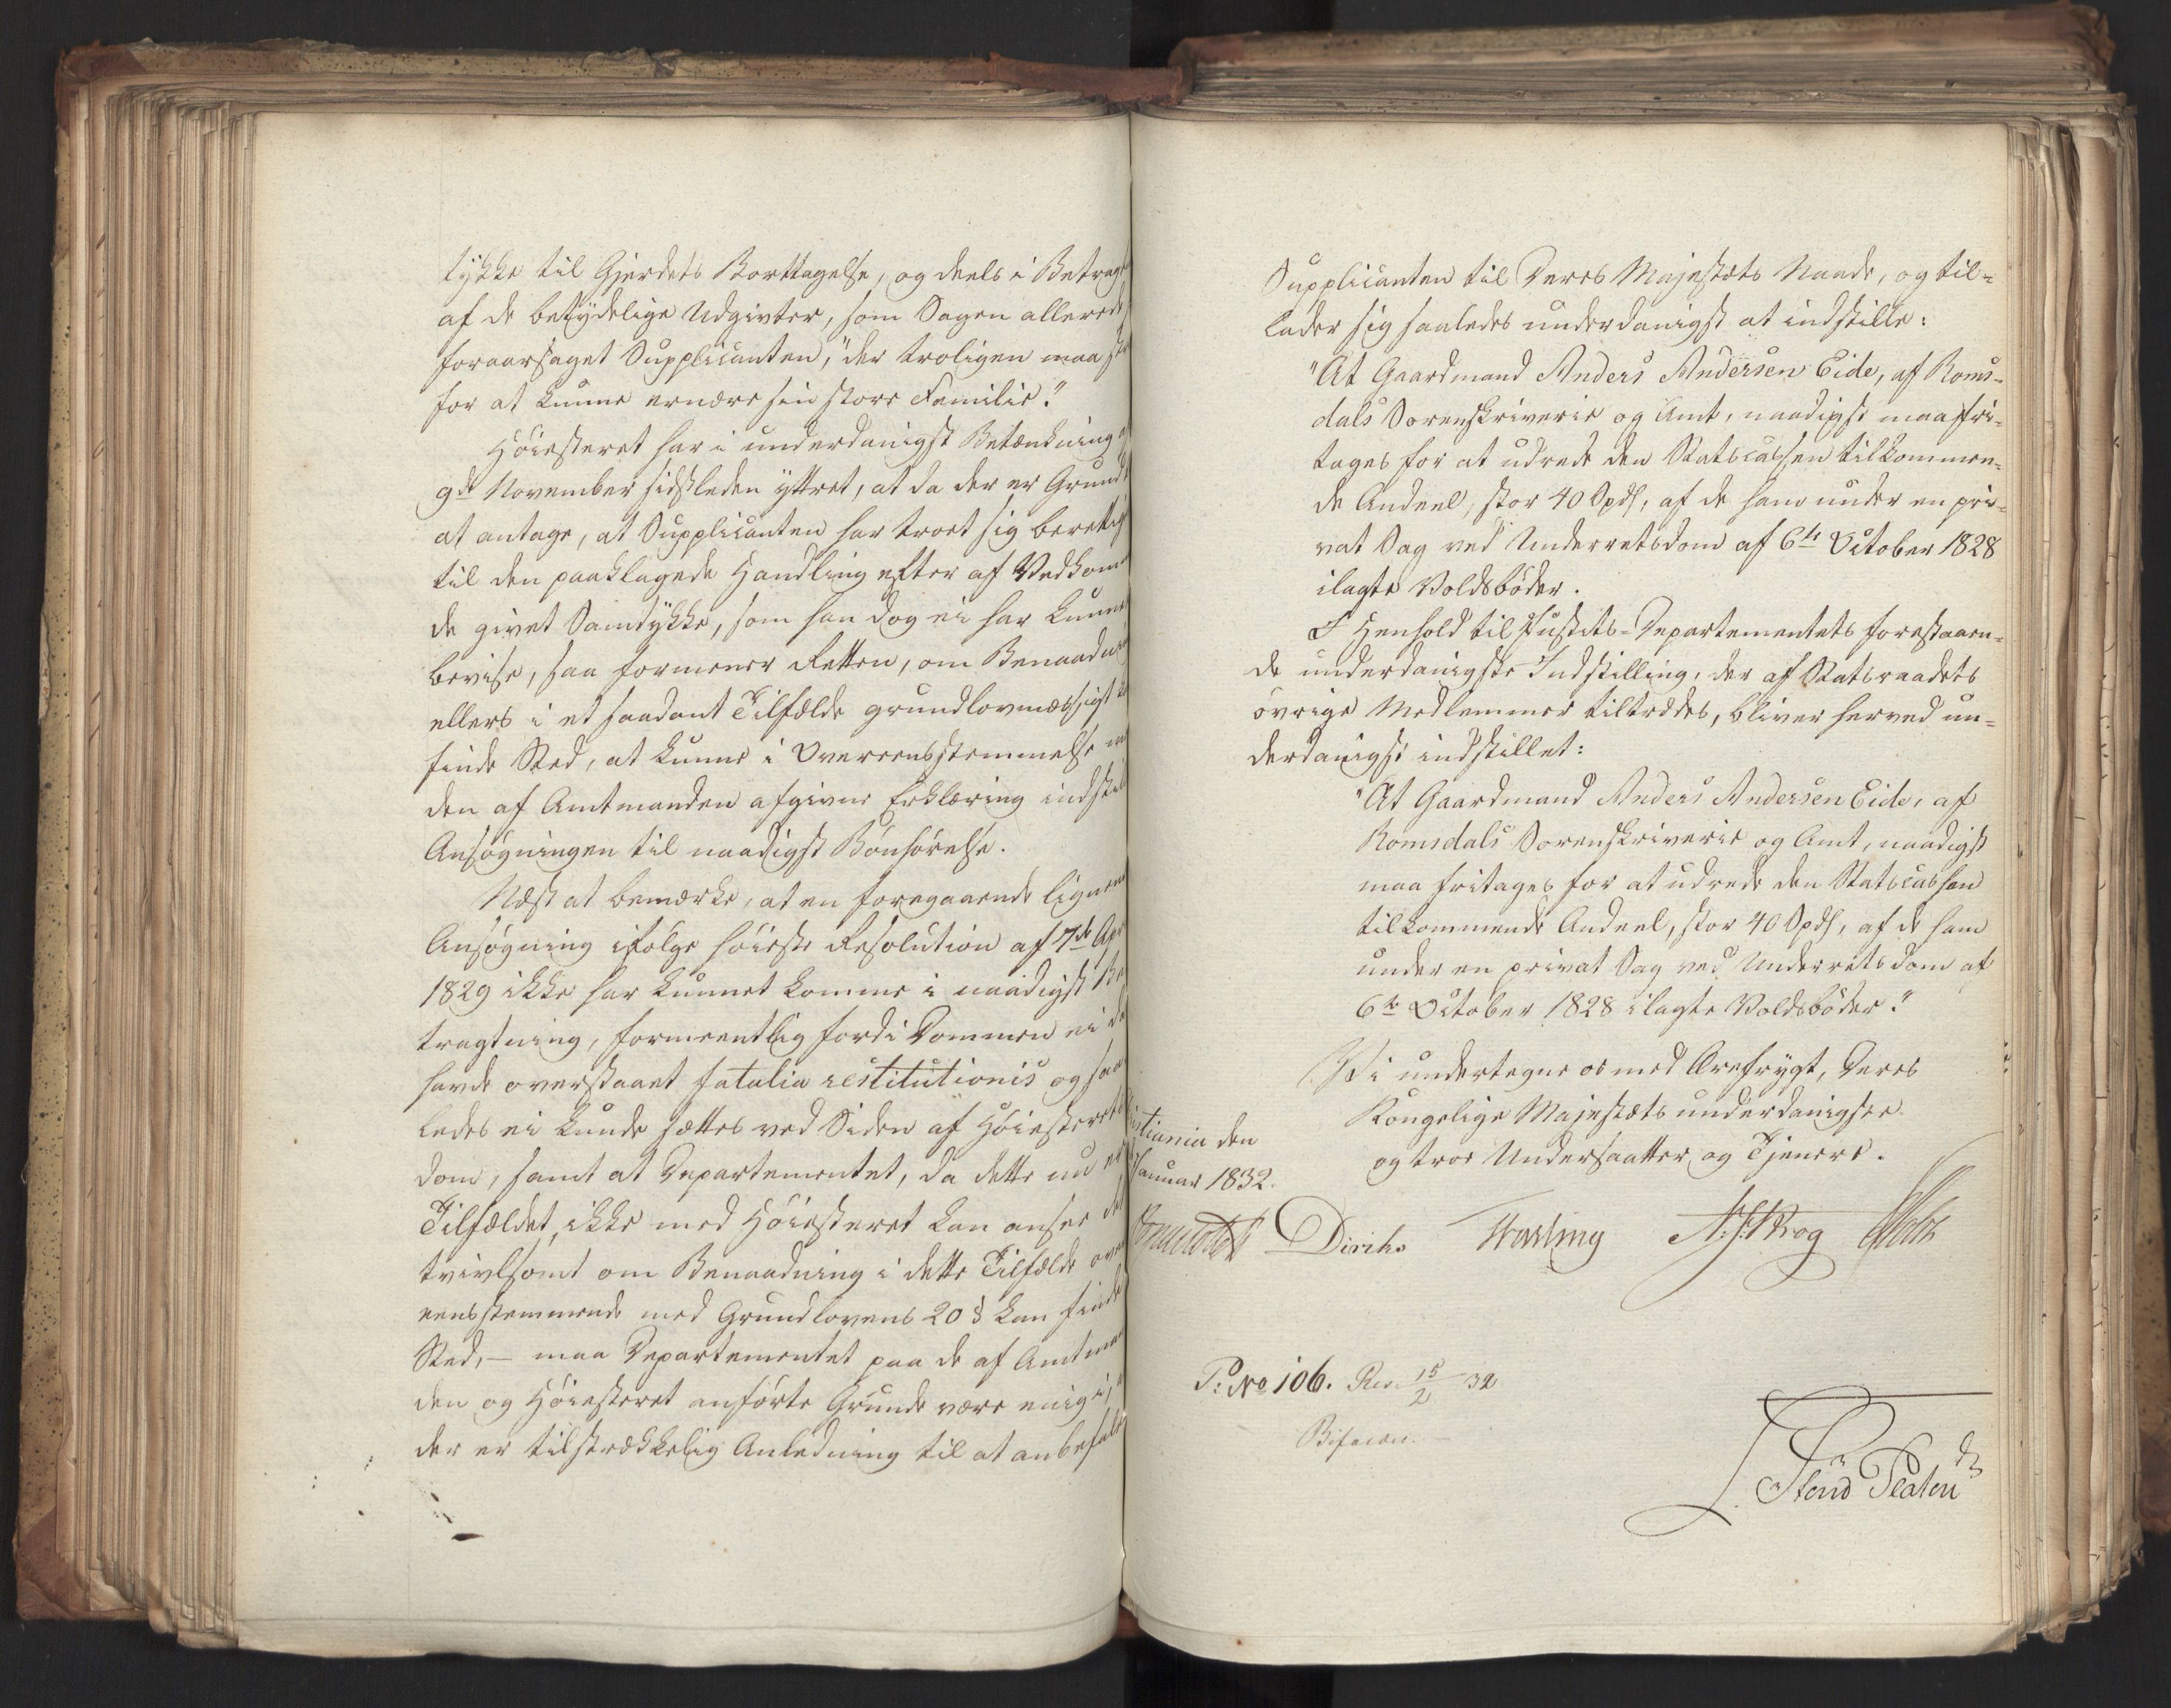 tykke til Gjerdets Borttagelse, og deels i Betragt
af de betydelige Udgivter, som Sagen allerede
foraarsaget Supplicanten, "der troligen maa
for at kunne ernære sin store Familie."
Höiesteret har i underdanigst Betænkning
9de November sidstleden yttret, at da der er Grund
at antage, at Supplicanten har troet sig berettig
til den paaklagede Handling efter af Vedkom
de givet Samtykke, som han dog ei har kunne
bevise, saa formener Retten, om Benaadn
ellers i et saadant Tilfælde grundlovmæssigt
finde Sted, at kunne i Overeensstemmelse
den af Amtmanden afgivne Erklæring indstil
Ansögningen til naadigst Bönhörelse.
Næst at bemærke, at en foregaaende lignen
Ansögning ifölge höieste Resolution af 7de Apr
1829 ikke har kunnet komme i naadigst Be
tragtning, formeentlig fordi Dommen ei da
havde overstaaet fatalia restitutionis og saa
ledes ei kunde sættes ved Siden af Höiesterets
Dom, samt at Departementet, da dette nu er
Tilfældet, ikke med Höiesteret kan ansee det
tvivlsomt om Benaadning i dette Tilfælde over
eensstemmende med Grundlovens 20 § kan finde
Sted, — maa Departementet paa de af Amtman
den og Höiesteret anförte Grunde være enig i,
der er tilstrækkelig Anledning til at anbefale
Supplicanten til Deres Majestæts Naade, og til-
lader sig saaledes underdanigst at indstille:
"At Gaardmand Anders Andersen Eide, af Roms-
dals Sorenskriverie og Amt, naadigst maa fri-
tages for at udrede den Statscassen tilkommen-
de Andeel, stor 40 Spds, af de ham under en pri-
vat Sag ved Underretsdom af 6te October 1828
ilagte Voldsböder.
I Henhold til Justits-Departementets forestaaen-
de underdanigste Indstilling, der af Statsraadets
övrige Medlemmer tiltrædes, bliver herved un-
derdanigst indstillet:
"At Gaardmand Anders Andersen Eide, af
Romsdals Sorenskriverie og Amt, naadigst
maa fritages for at udrede den Statscassen
tilkommende Andeel, stor 40 Spds, af de ham
under en privat Sag ved Underretsdom af
6te October 1828 ilagte Voldsböder."
Vi undertegne os med Ærefrygt, Deres
Kongelige Majestæts underdanigste
og troe Undersaatter og Tjenere.
istiania den
Januar 1832.
Diriks Krog Holst
P: No 106. Res. 15/2 32
Bifaldes.
Platen